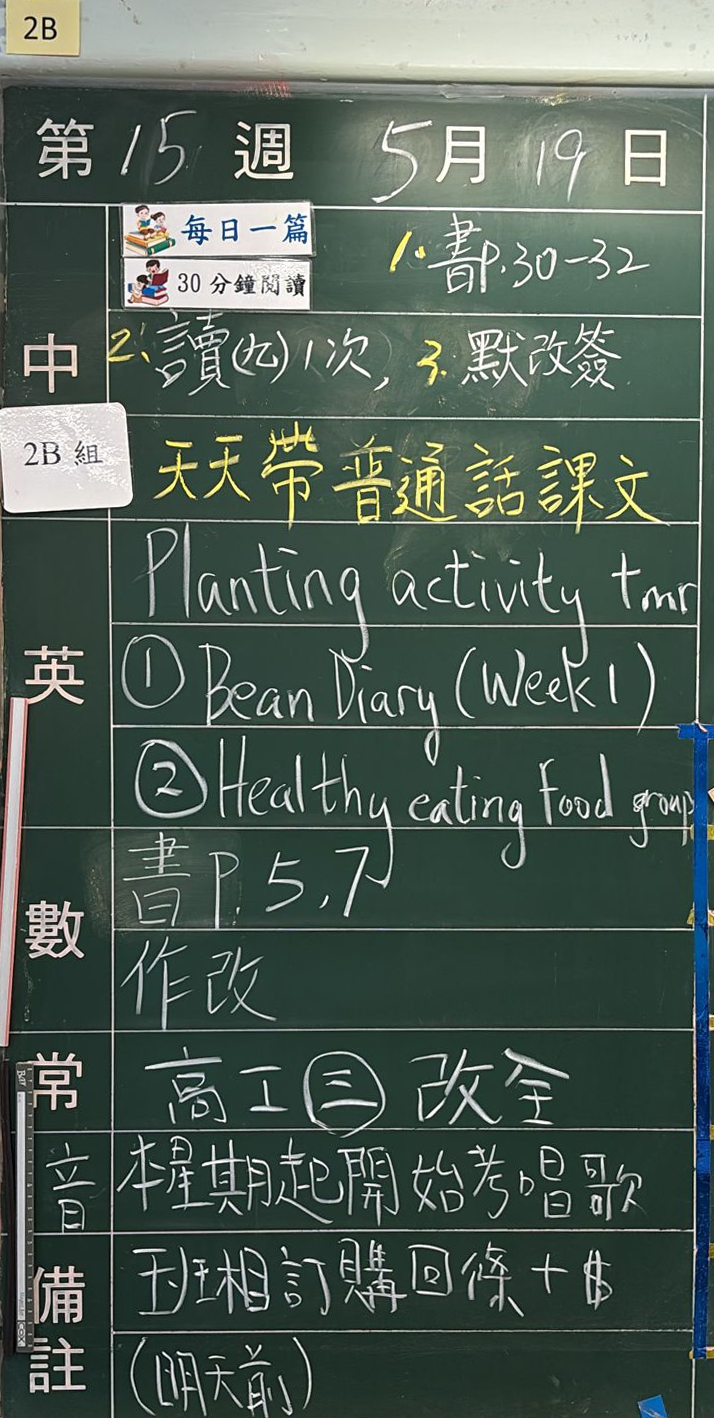 2B
第 15 週 5月 19 日
每日一篇
30 分鐘閱讀
1. 書P.30-32
中
2. 讀(九)1次, 3. 默改簽
2B 組
天天帶普通話課文
Planting activity tmr
英
① Bean Diary (Week 1)
② Healthy eating food group
數
書 P. 5, 7
作改
常
高工㊂ 改全
音
本星期起開始考唱歌
備註
班相訂購回條 + $
(明天前)